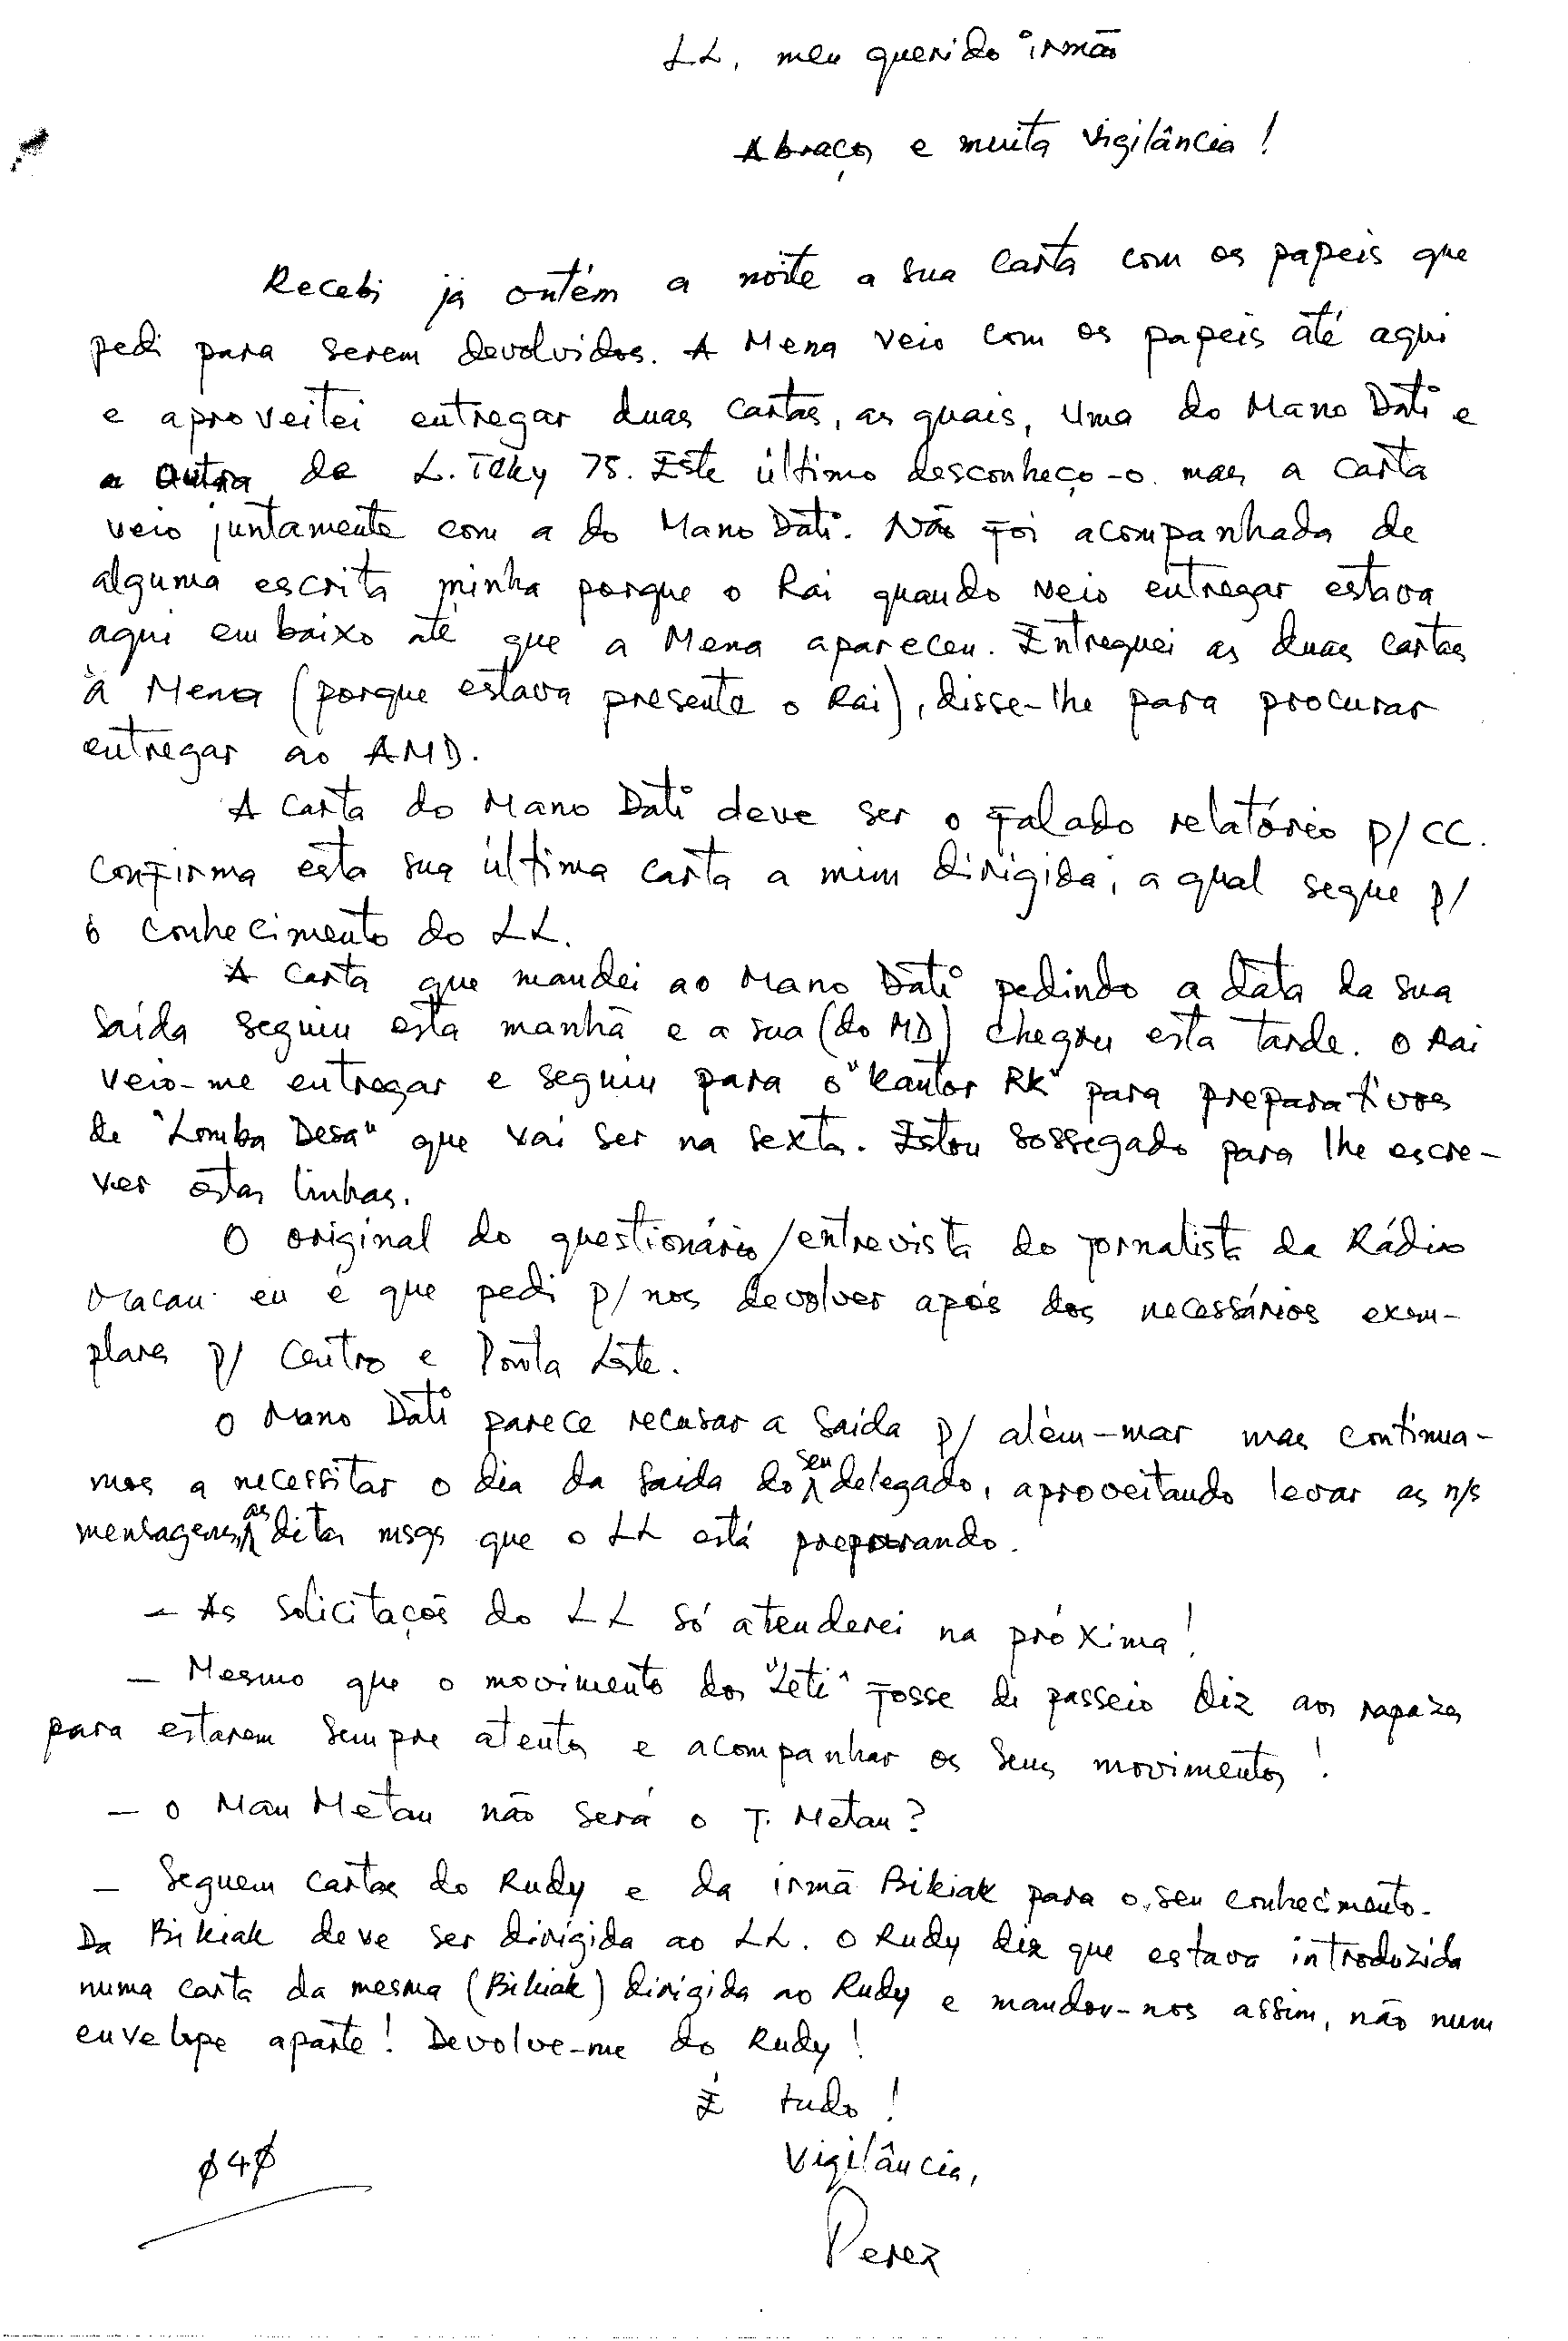 LL, meu querido irmão
Abraços e muita vigilância!
Recebi já ontém a noite a sua carta com os papeis que
pedi para serem devolvidos. A Mena veio com os papeis até aqui
e aproveitei entregar duas cartas, as quais, uma do Mano Dati e
a outra de L. Teky 75. Este último desconheço-o mas a carta
veio juntamente com a do Mano Dati. Não foi acompanhada de
alguma escrita minha porque o Rai quando veio entregar estava
aqui em baixo até que a Mena apareceu. Entreguei as duas cartas
à Mena (porque estava presente o Rai), disse-lhe para procurar
entregar ao AMD.
A carta do Mano Dati deve ser o falado relatório p/ CC.
Confirma esta sua última carta a mim dirigida, a qual segue p/
o conhecimento do LL.
A carta que mandei ao Mano Dati pedindo a data da sua
saída seguiu esta manhã e a sua (do MD) chegou esta tarde. O Rai
veio-me entregar e seguiu para o "Kantor RK" para preparativos
de "Lomba Desa" que vai ser na sexta. Estou sossegado para lhe escre-
ver estas linhas.
O original do questionário/entrevista do jornalista da Rádio
Macau eu é que pedi p/ nos devolver após dos necessários exem-
plares p/ Centro e Ponta Leste.
O Mano Dati parece recusar a saída p/ além-mar mas continua-
mos a necessitar o dia da saída do seu delegado, aproveitando levar as n/s
mensagens, as ditas msgs que o LL está preparando.
- As solicitaçõs do LL só atenderei na próxima!
- Mesmo que o movimento dos "Leti" fosse de passeio diz aos rapazes
para estarem sempre atentos e acompanhar os seus movimentos!
- O Mau Metau não será o T. Metau?
- Seguem cartas do Rudy e da irmã Bikiak para o seu conhecimento.
Da Bikiak deve ser dirigida ao LL. O Rudy diz que estava introduzida
numa carta da mesma (Bikiak) dirigida ao Rudy e mandou-nos assim, não num
envelope aparte! Devolve-me do Rudy!
É tudo!
Vigilância,
040
Perez